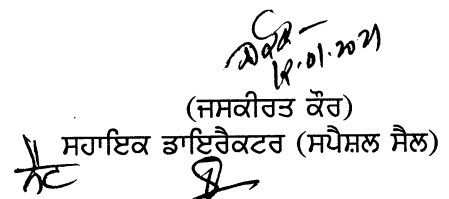 12.01.2021
(ਜਸਕੀਰਤ ਕੌਰ)
ਸਹਾਇਕ ਡਾਇਰੈਕਟਰ (ਸਪੈਸ਼ਲ ਸੈਲ)
ਨੈਟ